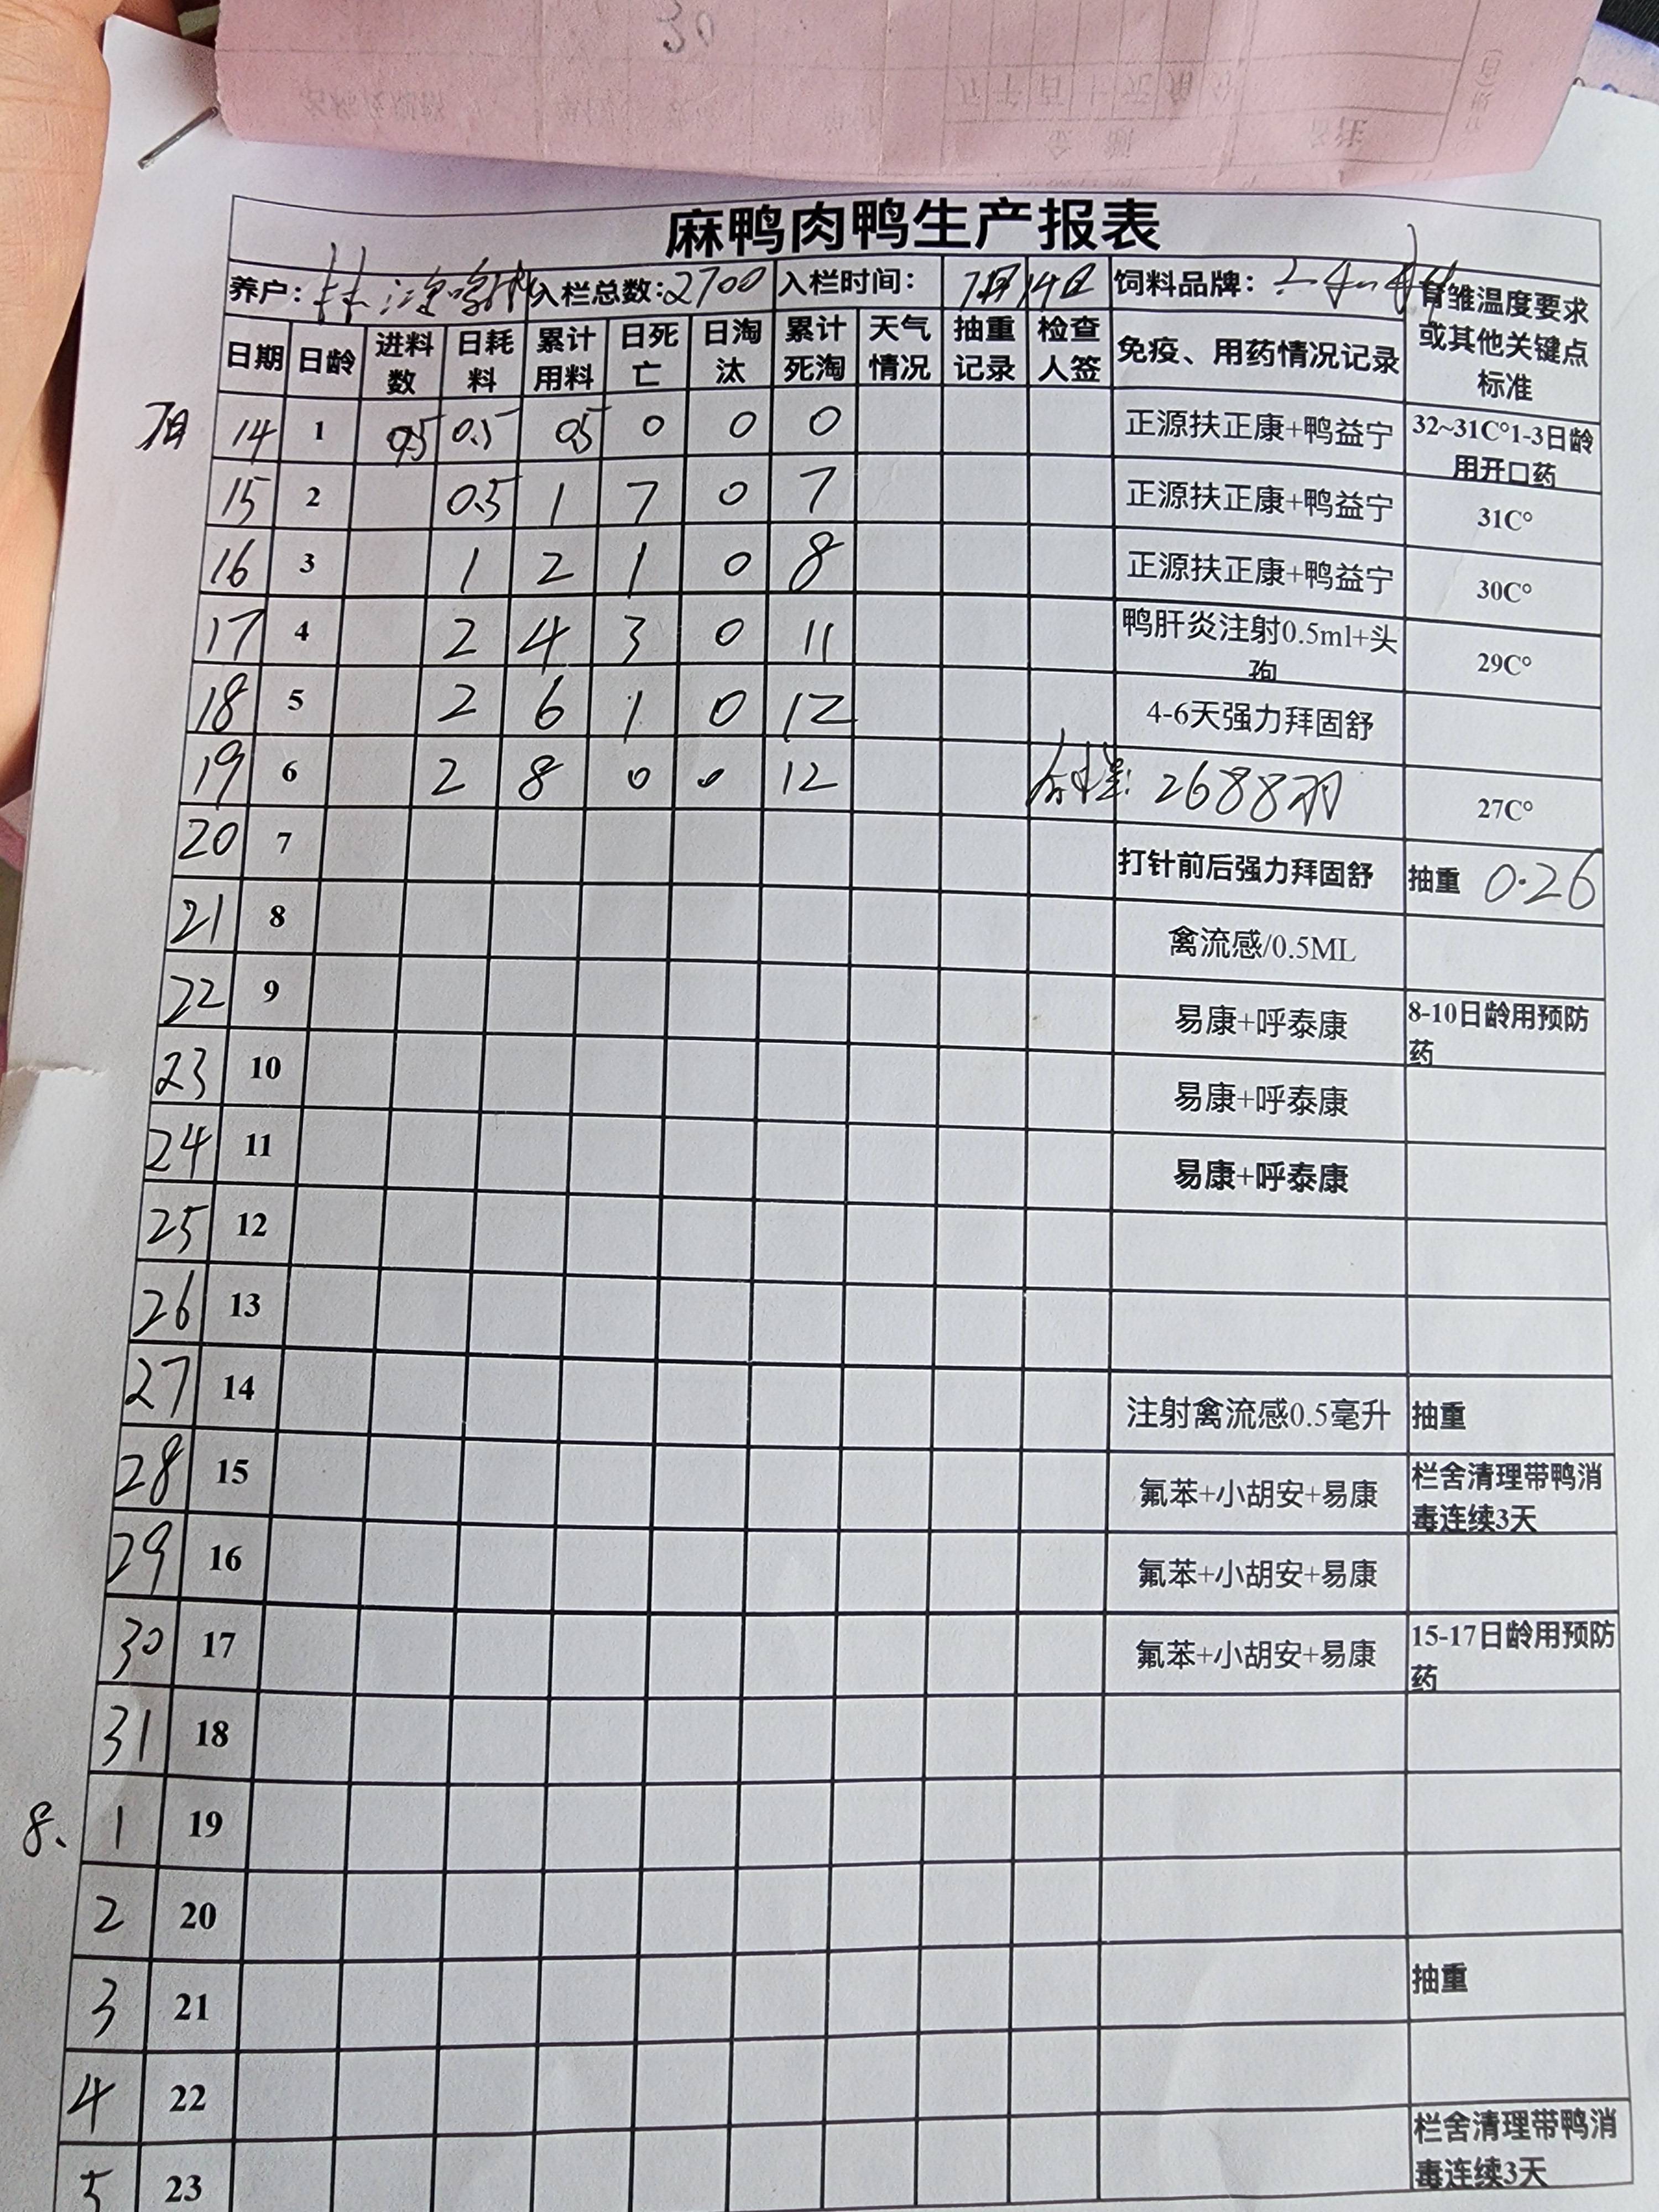 30
麻鸭肉鸭生产报表
养户： 林 入栏总数：2700 入栏时间： 7月14日 饲料品牌：
日期 日龄 进料数 日耗料 累计用料 日死亡 日淘汰 累计死淘 天气情况 抽重记录 检查人签 免疫、用药情况记录 育雏温度要求或其他关键点标准
7月 14 1 0.5 0.5 0.5 0 0 0 正源扶正康+鸭益宁 32~31C°1-3日龄用开口药
15 2 0.5 1 7 0 7 正源扶正康+鸭益宁 31C°
16 3 1 2 1 0 8 正源扶正康+鸭益宁 30C°
17 4 2 4 3 0 11 鸭肝炎注射0.5ml+头孢 29C°
18 5 2 6 1 0 12 4-6天强力拜固舒
19 6 2 8 0 0 12 2688羽 27C°
20 7 打针前后强力拜固舒 抽重 0.26
21 8 禽流感/0.5ML
22 9 易康+呼泰康 8-10日龄用预防药
23 10 易康+呼泰康
24 11 易康+呼泰康
25 12
26 13
27 14 注射禽流感0.5毫升 抽重
28 15 氟苯+小胡安+易康 栏舍清理带鸭消毒连续3天
29 16 氟苯+小胡安+易康
30 17 氟苯+小胡安+易康 15-17日龄用预防药
31 18
8、 1 19
2 20
3 21 抽重
4 22
5 23 栏舍清理带鸭消毒连续3天